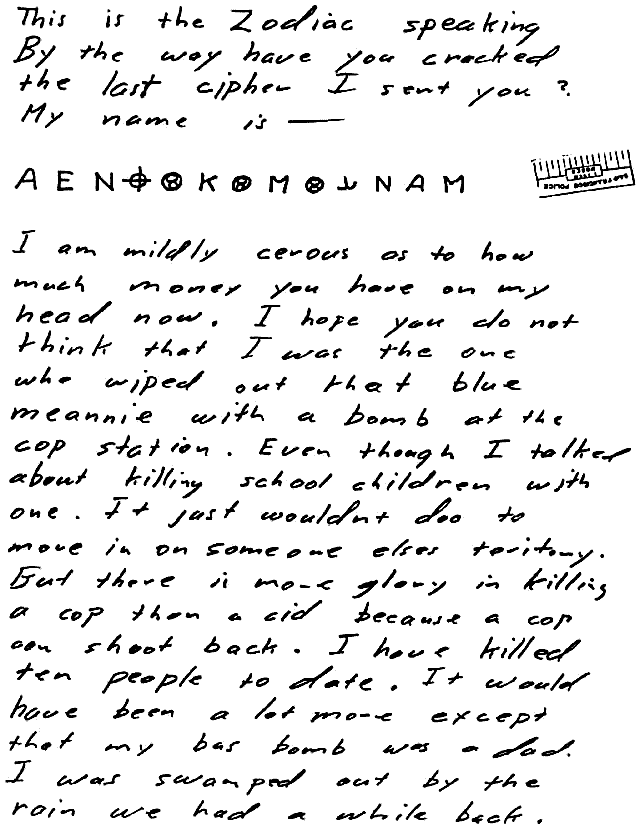 This is the Zodiac speaking
By the way have you cracked
the last cipher I sent you ?
My name is —
A E N ⌖ ⊗ K ⊗ M ⊗ ⅃ N A M
SAN FRANCISCO POLICE
I am mildly cerous as to how
much money you have on my
head now. I hope you do not
think that I was the one
who wiped out that blue
meannie with a bomb at the
cop station. Even though I talked
about killing school children with
one. It just wouldnt doo to
move in on someone elses teritory.
But there is more glory in killing
a cop than a cid because a cop
can shoot back. I have killed
ten people to date. It would
have been a lot more except
that my bus bomb was a dud.
I was swamped out by the
rain we had a while back.